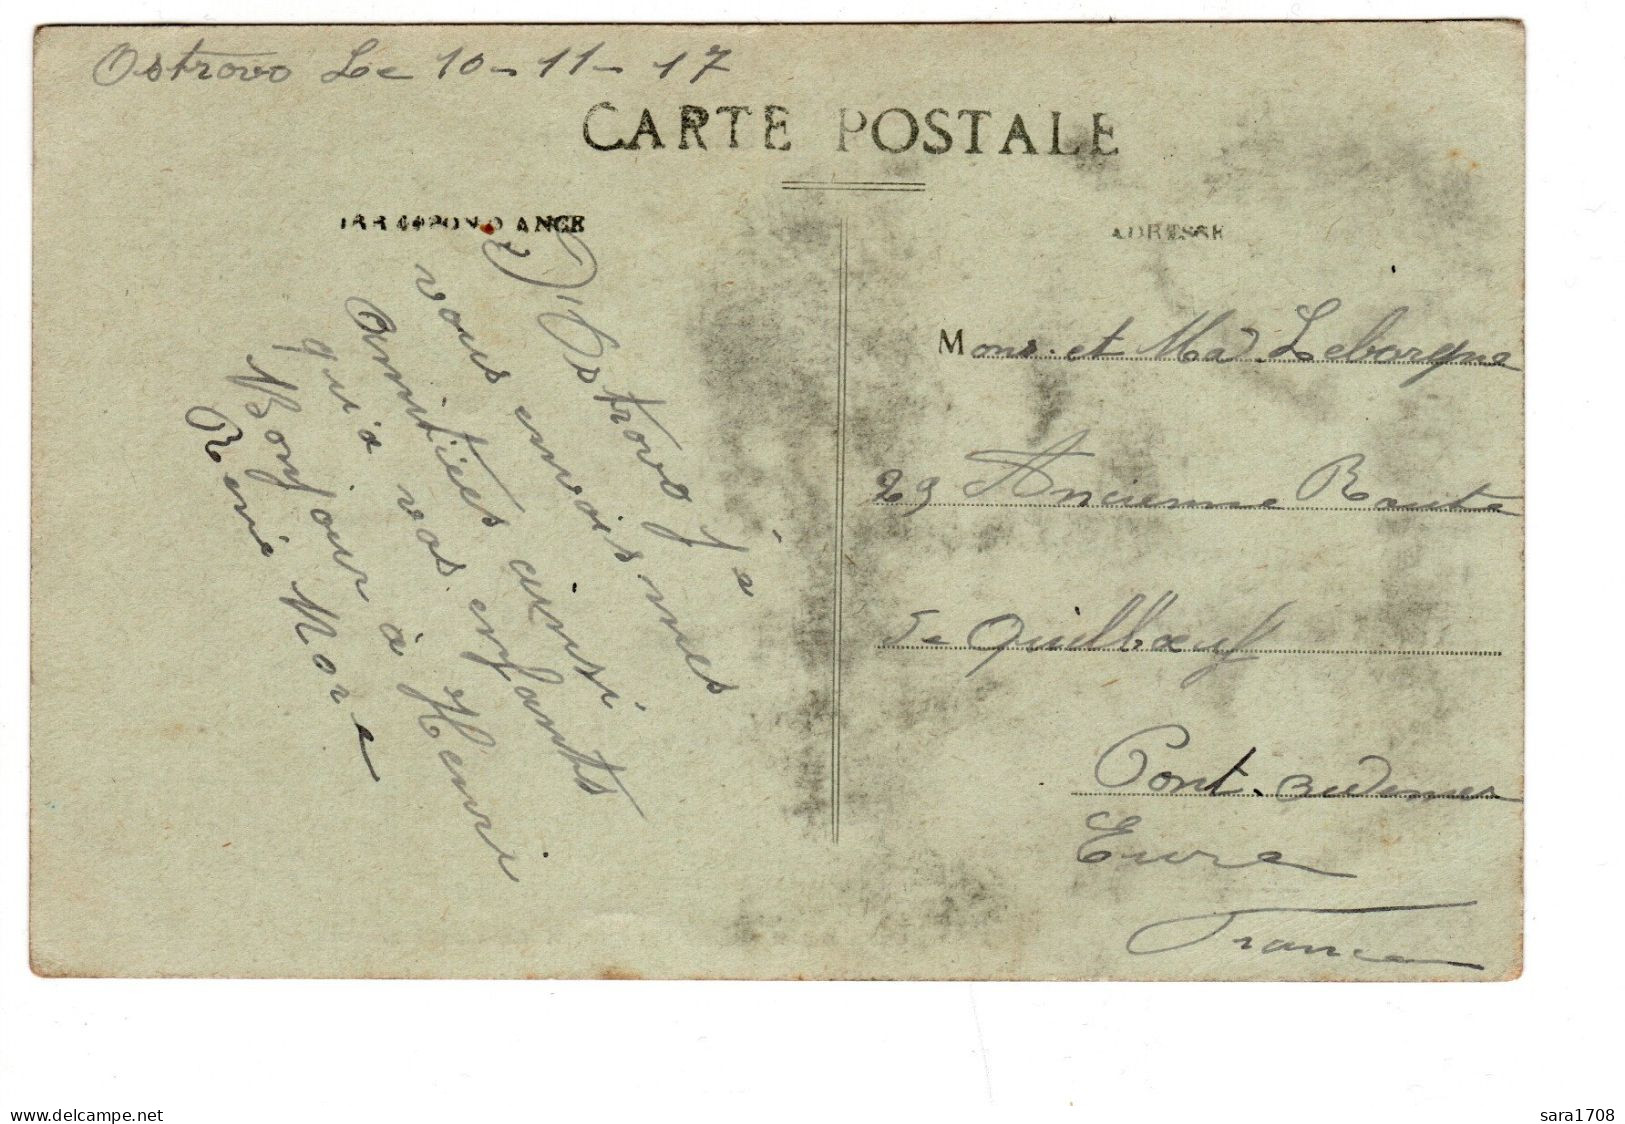 Ostrovo Le 10-11-17
CARTE POSTALE
ANCE
ADRESSE
D'Ostrovo Je
vous envois mes
amitiées ainsi
qu'a vos enfants
Bonjour à Henri
René More
Mons. et Mad. Leborgne
29 Ancienne Route
de Quillbœuf
Pont. audemer
Eure
France
www.delcampe.net
sara1708